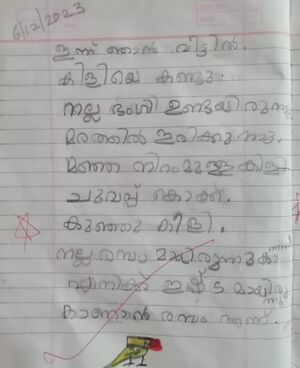 6/12/2023
ഇന്ന് ഞാൻ വീട്ടിൽ.
കിളിയെ കണ്ടു.
നല്ല ഭംഗി ഉണ്ടായിരുന്നു
മരത്തിൽ ഇരിക്കുന്നു.
മഞ്ഞ നിറംമുള്ള കിളി
ചുവല്പ് കൊക്ക്.
കുഞ്ഞു കിളി.
നല്ല രസം മായിരുന്നു കാണാൻ
എനിക്ക് ഇഷ്ട മായിരുന്നു
കാണാൻ രസം ആണ്.
11